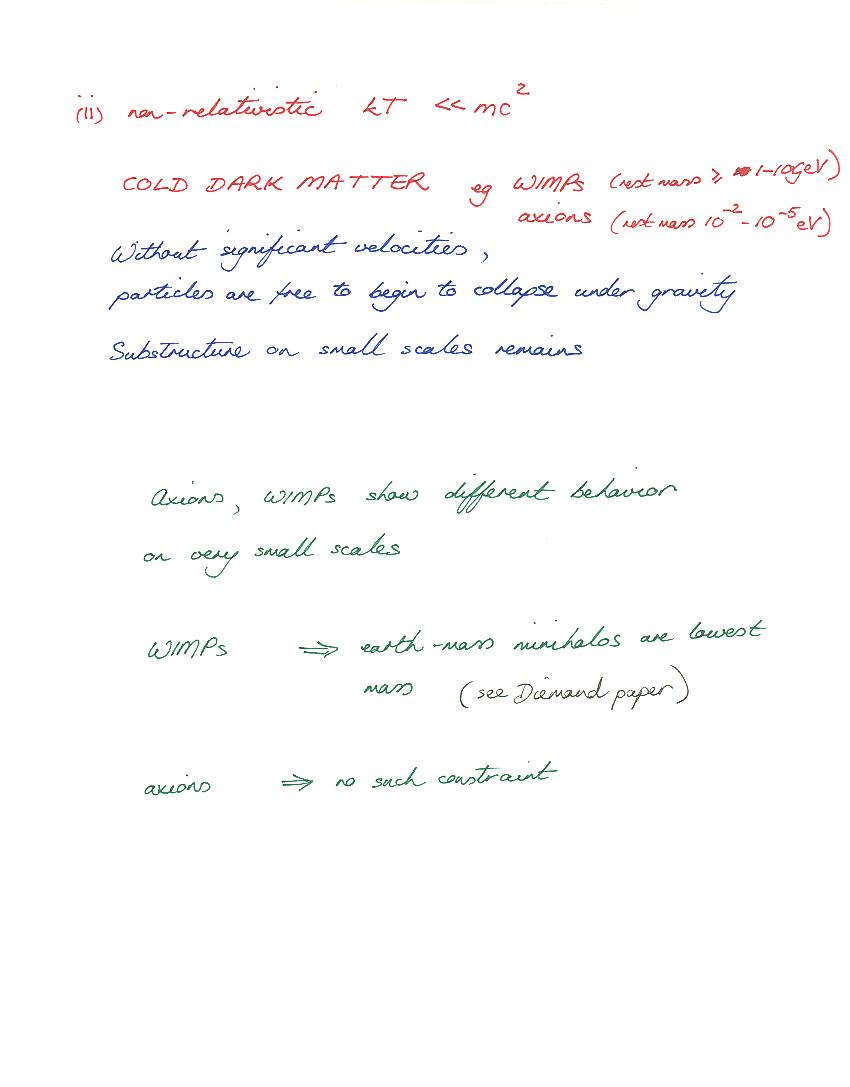 (ii) non-relativistic kT << mc²
COLD DARK MATTER eg WIMPs (rest mass ⩾ 1-10GeV)
axions (rest mass 10⁻² - 10⁻⁵ eV)
Without significant velocities,
particles are free to begin to collapse under gravity
Substructure on small scales remains
Axions, WIMPs show different behavior
on very small scales
WIMPs ⇒ earth-mass minihalos are lowest
mass (see Diemand paper)
axions ⇒ no such constraint